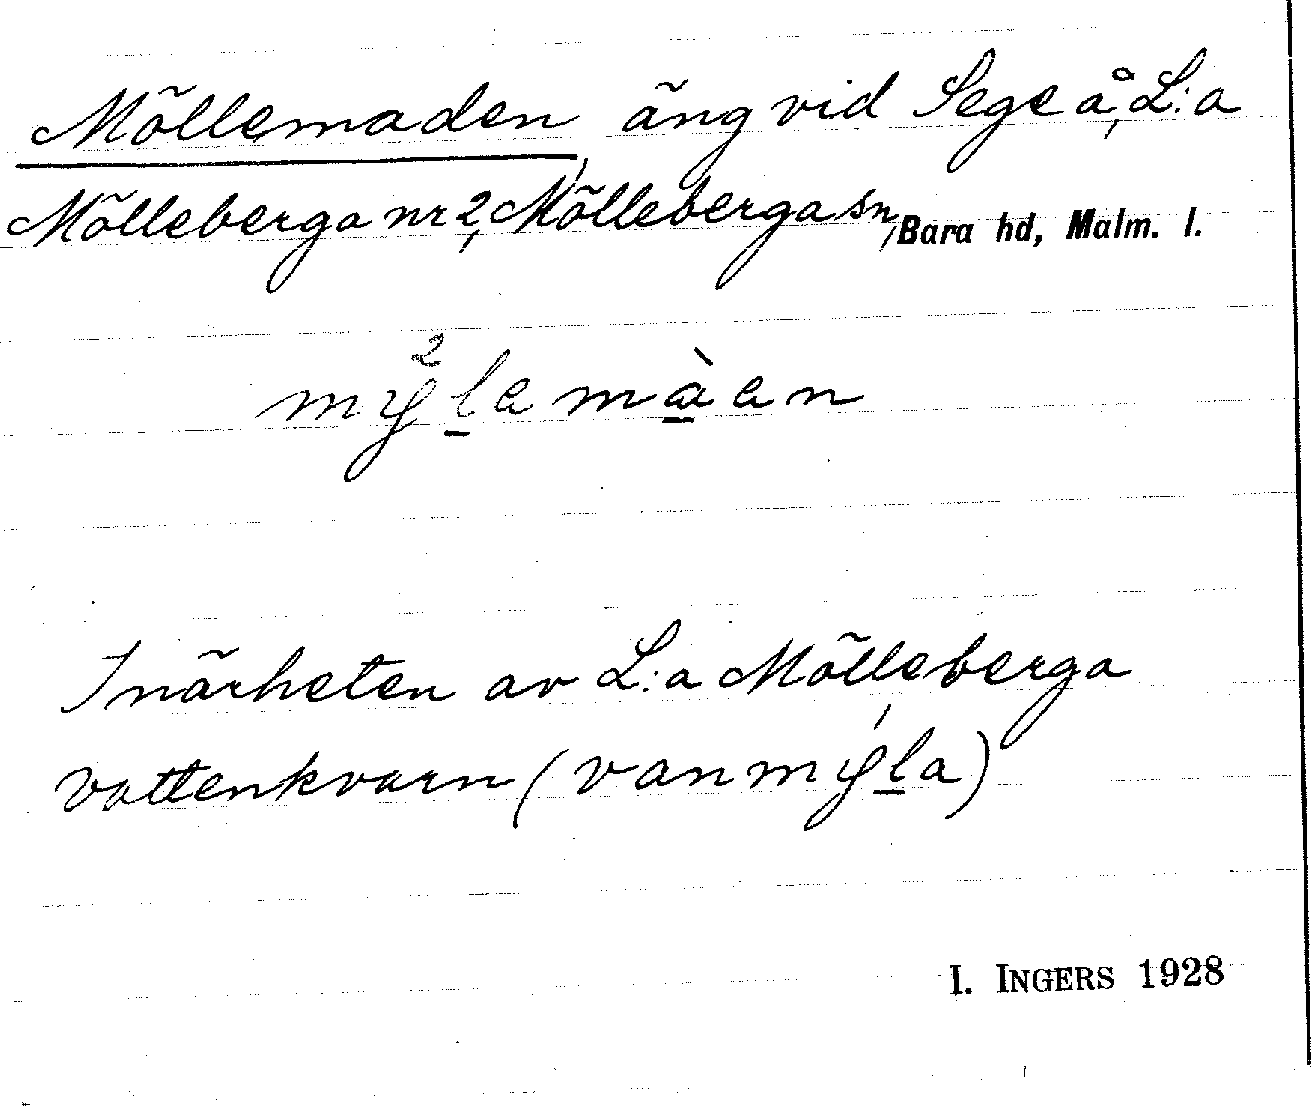 Möllemaden, äng vid Sege å, L:a
Mölleberga nr 2, Mölleberga sn, Bara hd, Malm. l.
I närheten av L:a Mölleberga
vattenkvarn (
I. INGERS 1928